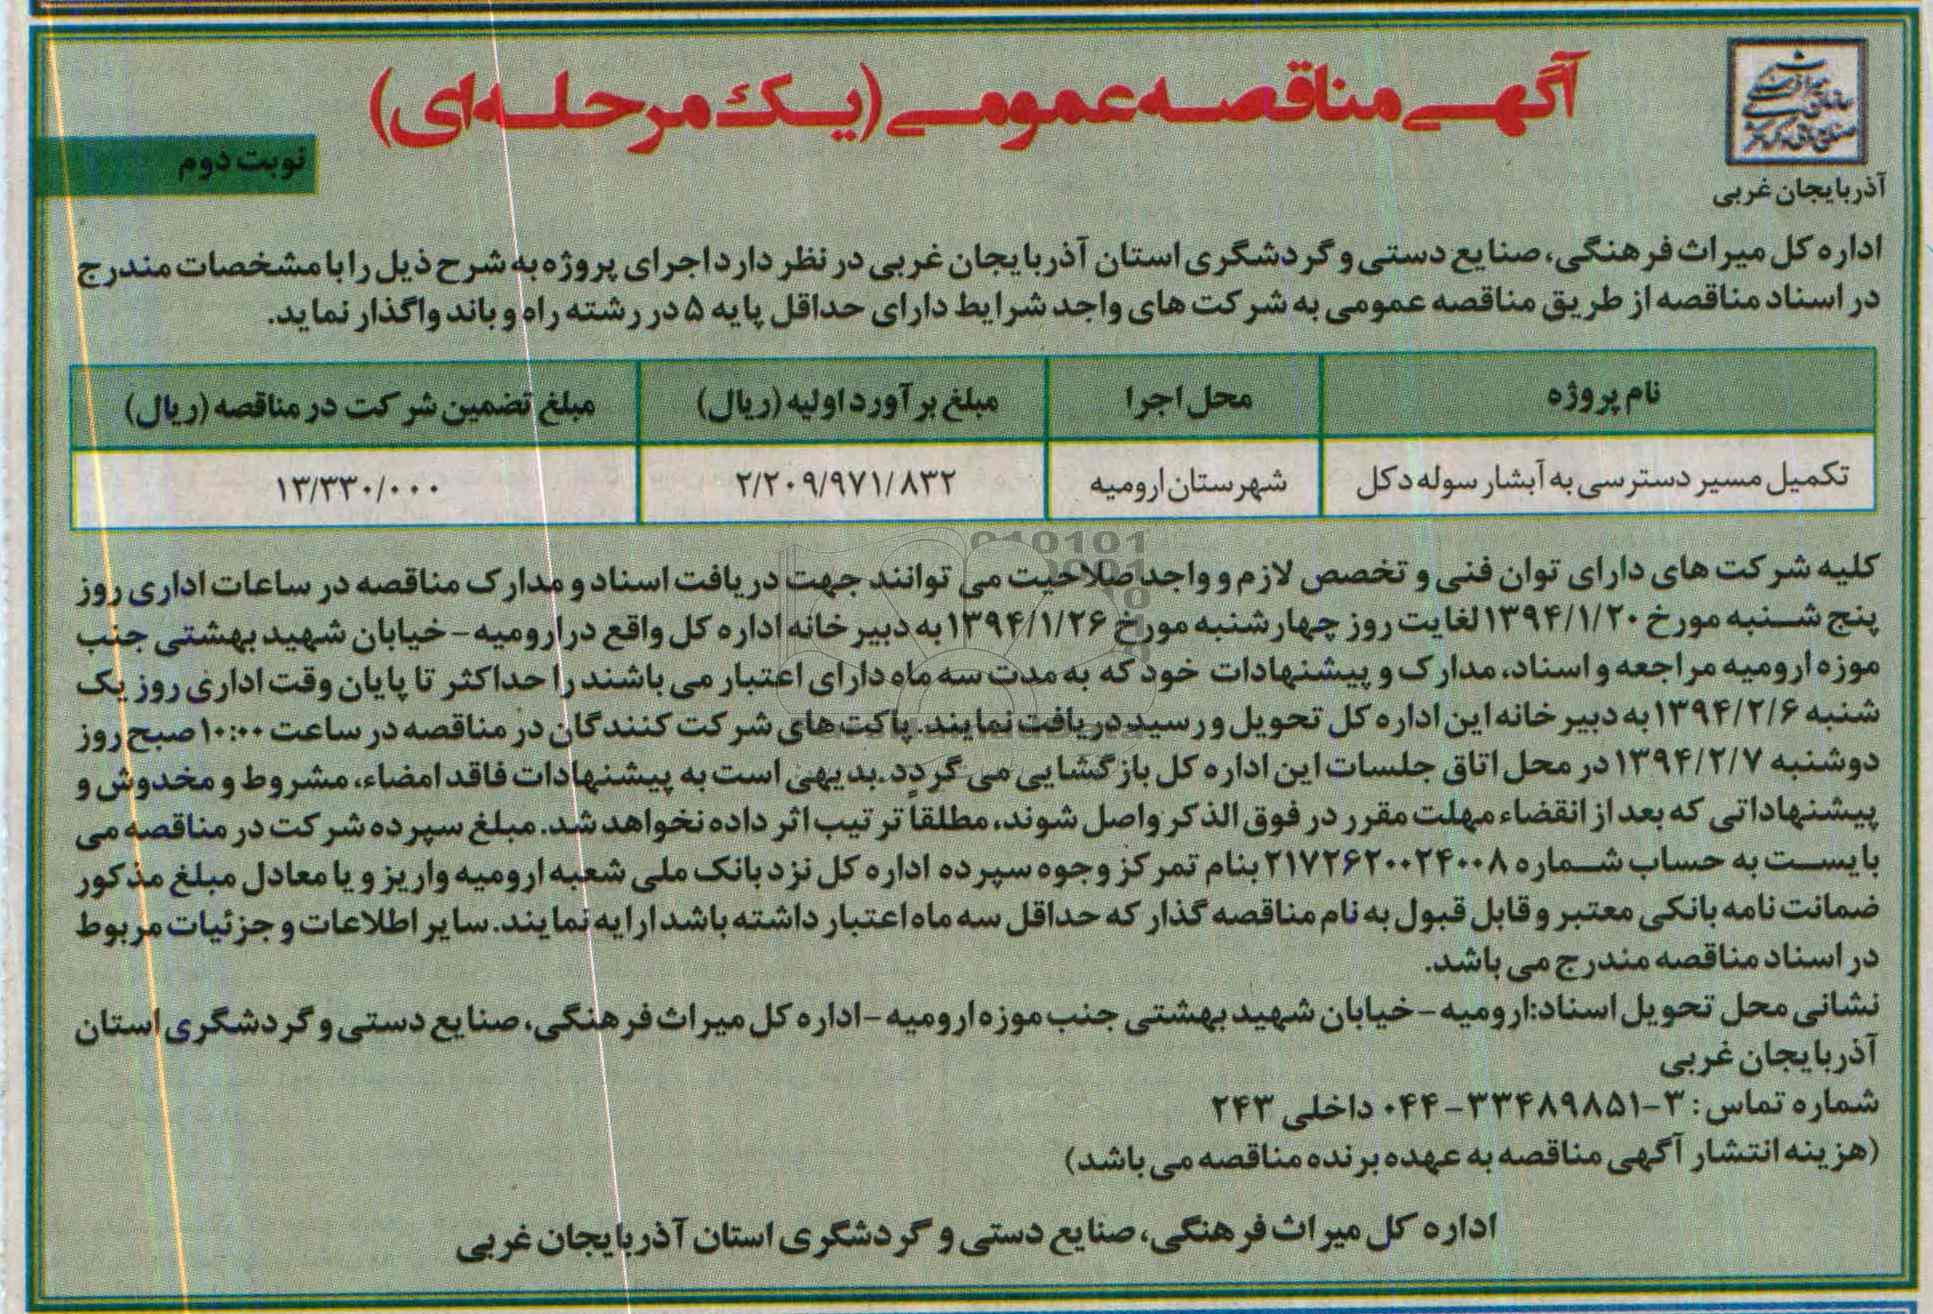 آگهی مناقصه عمومی (یک مرحله‌ای)
نوبت دوم
آذربایجان غربی
اداره کل میراث فرهنگی، صنایع دستی و گردشگری استان آذربایجان غربی در نظر دارد اجرای پروژه به شرح ذیل را با مشخصات مندرج
در اسناد مناقصه از طریق مناقصه عمومی به شرکت های واجد شرایط دارای حداقل پایه ۵ در رشته راه و باند واگذار نماید.
نام پروژه محل اجرا مبلغ برآورد اولیه (ریال) مبلغ تضمین شرکت در مناقصه (ریال)
تکمیل مسیر دسترسی به آبشار سوله دکل شهرستان ارومیه ۲/۲۰۹/۹۷۱/۸۳۲ ۱۳/۳۳۰/۰۰۰
کلیه شرکت های دارای توان فنی و تخصص لازم و واجد صلاحیت می توانند جهت دریافت اسناد و مدارک مناقصه در ساعات اداری روز
پنج شنبه مورخ ۱۳۹۴/۱/۲۰ لغایت روز چهارشنبه مورخ ۱۳۹۴/۱/۲۶ به دبیرخانه اداره کل واقع در ارومیه – خیابان شهید بهشتی جنب
موزه ارومیه مراجعه و اسناد، مدارک و پیشنهادات خود که به مدت سه ماه دارای اعتبار می باشند را حداکثر تا پایان وقت اداری روز یک
شنبه ۱۳۹۴/۲/۶ به دبیرخانه این اداره کل تحویل و رسید دریافت نمایند. پاکت های شرکت کنندگان در مناقصه در ساعت ۱۰:۰۰ صبح روز
دوشنبه ۱۳۹۴/۲/۷ در محل اتاق جلسات این اداره کل بازگشایی می گردد. بدیهی است به پیشنهادات فاقد امضاء، مشروط و مخدوش و
پیشنهاداتی که بعد از انقضاء مهلت مقرر در فوق الذکر واصل شوند، مطلقاً ترتیب اثر داده نخواهد شد. مبلغ سپرده شرکت در مناقصه می
بایست به حساب شماره ۲۱۷۲۶۲۰۰۲۴۰۰۸ بنام تمرکز وجوه سپرده اداره کل نزد بانک ملی شعبه ارومیه واریز و یا معادل مبلغ مذکور
ضمانت نامه بانکی معتبر و قابل قبول به نام مناقصه گذار که حداقل سه ماه اعتبار داشته باشد ارایه نمایند. سایر اطلاعات و جزئیات مربوط
در اسناد مناقصه مندرج می باشد.
نشانی محل تحویل اسناد: ارومیه – خیابان شهید بهشتی جنب موزه ارومیه – اداره کل میراث فرهنگی، صنایع دستی و گردشگری استان
آذربایجان غربی
شماره تماس: ۳-۳۳۴۸۹۸۵۱-۰۴۴ داخلی ۲۴۳
(هزینه انتشار آگهی مناقصه به عهده برنده مناقصه می باشد)
اداره کل میراث فرهنگی، صنایع دستی و گردشگری استان آذربایجان غربی